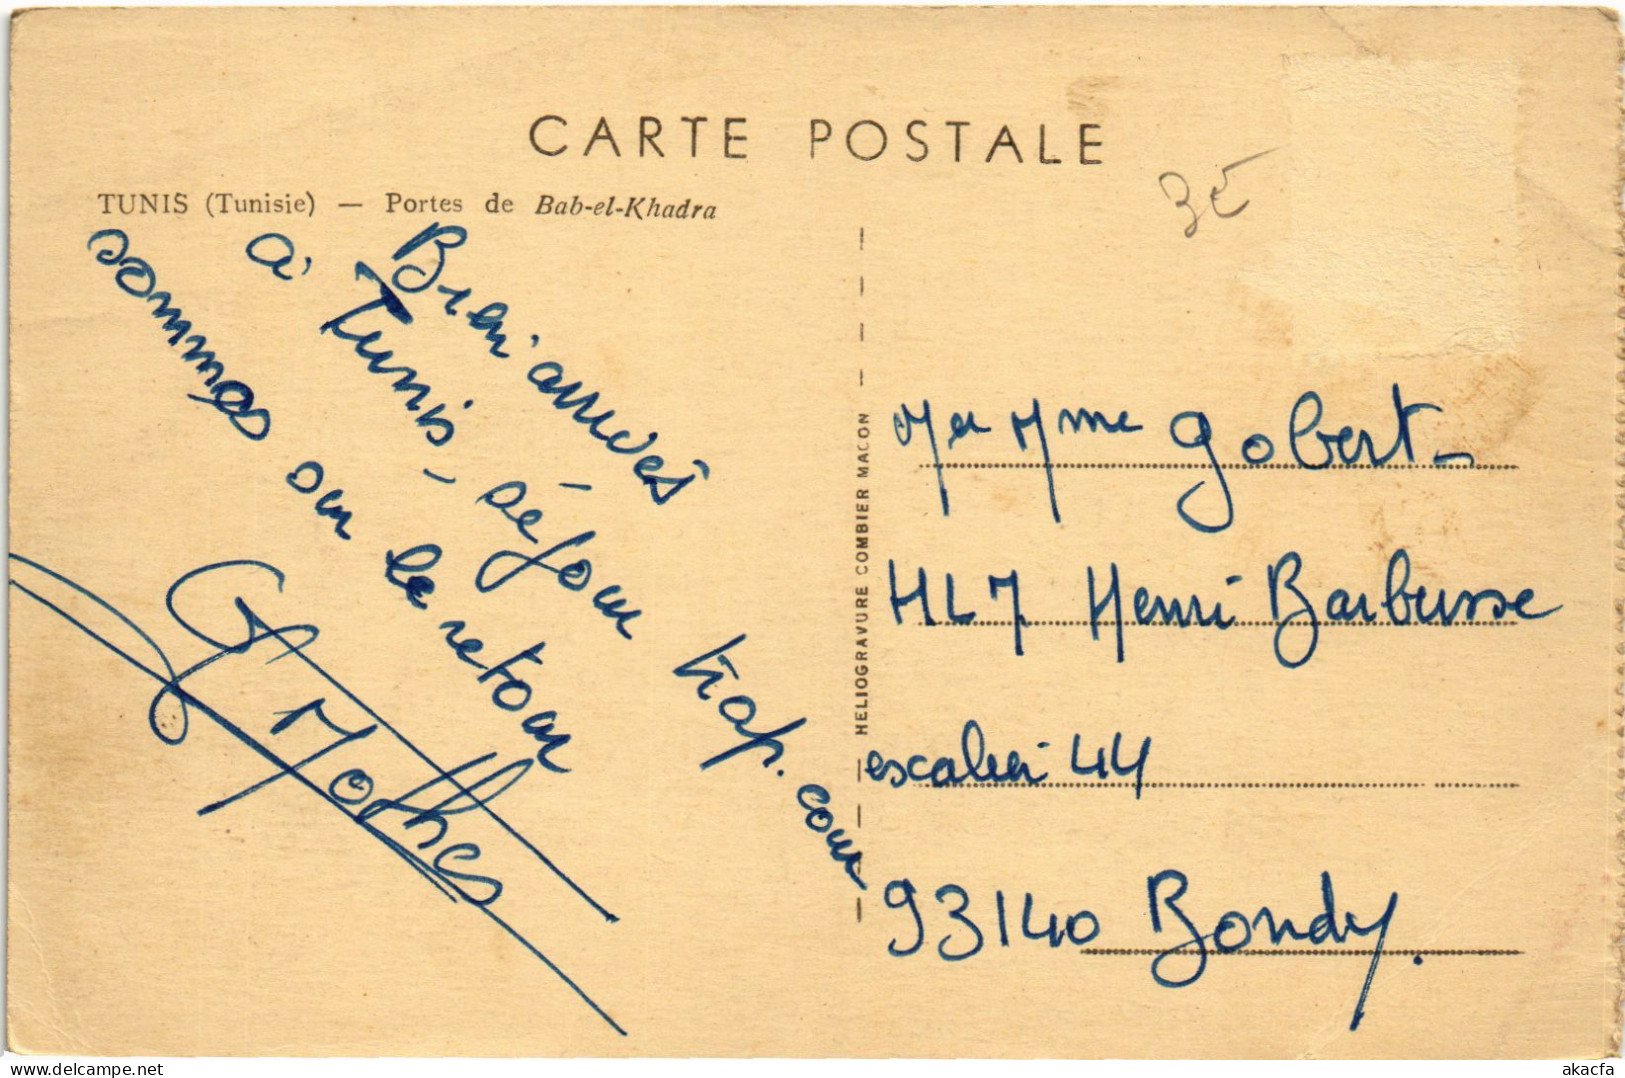 CARTE POSTALE
3€
TUNIS (Tunisie) — Portes de Bab-el-Khadra
Bien arrivés
à Tunis, séjour trop court
sommes sur le retour
G Mothes
HELIOGRAVURE COMBIER MACON
M et Mme Gobert
HLM Henri Barbusse
escalier 44
93140 Bondy.
akacfa